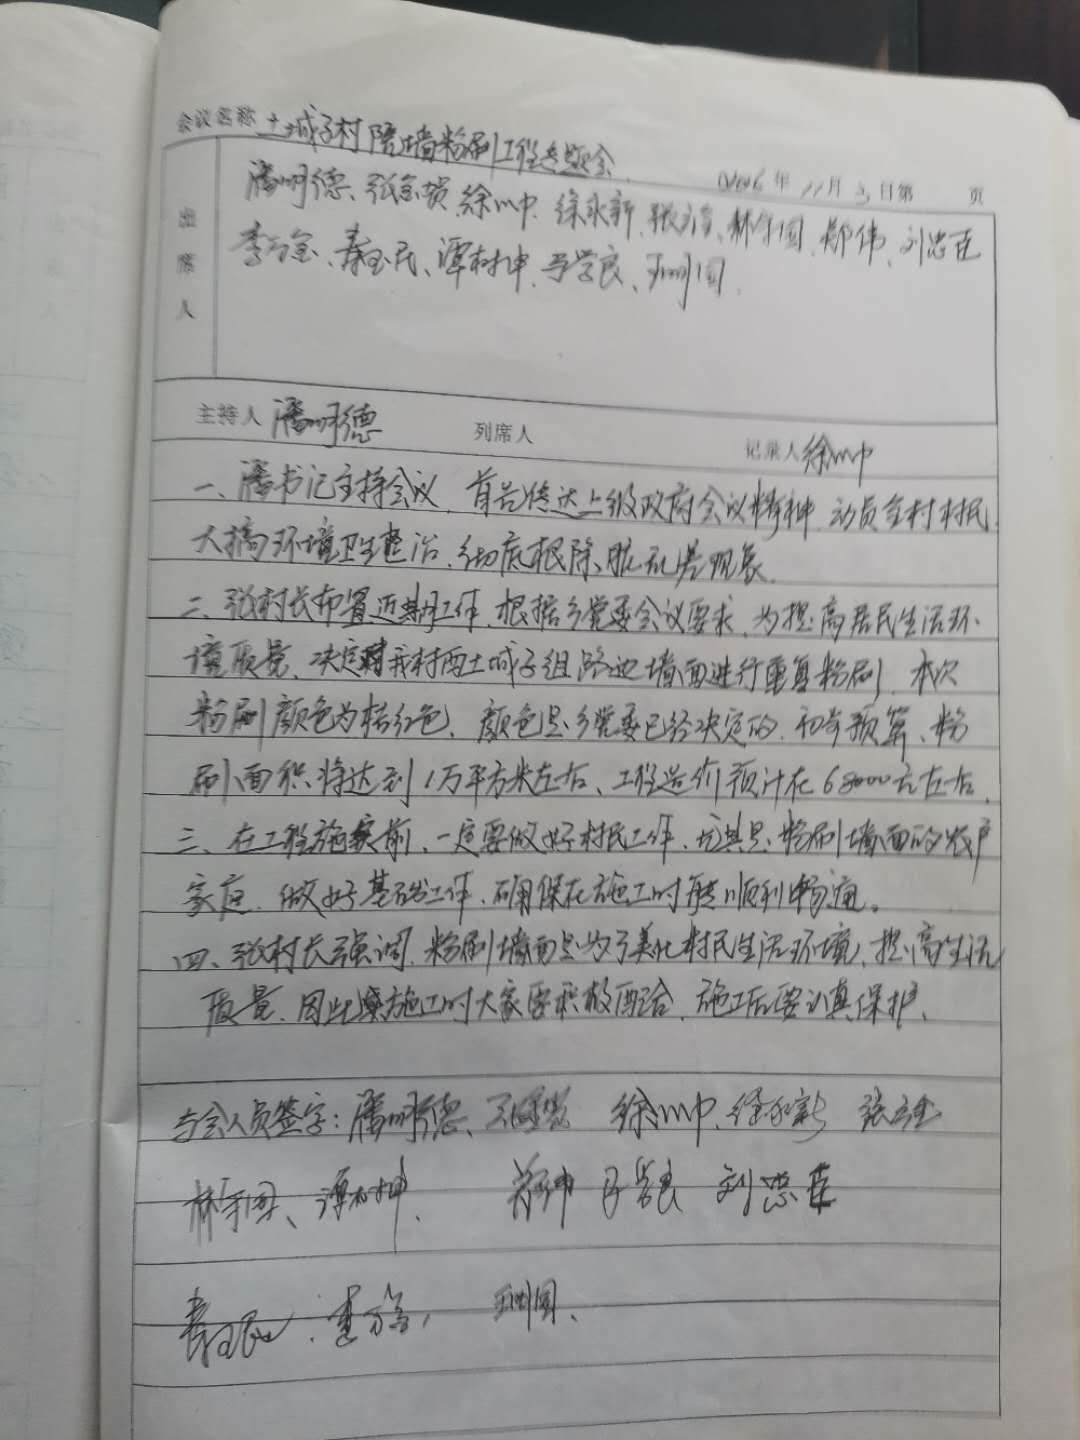 会议名称 土城子村陪墙粉刷工程专题会
年 11月 3日第 页
出席人
潘明德、张 徐 中、徐永新、张 、林守国、郑伟、刘忠臣
李万金、秦玉民、谭树坤、马学良、王明国
主持人 潘明德 列席人 记录人 徐 中
一、潘书记主持会议,首先传达上级政府会议精神,动员全村村民
大搞环境卫生整治,彻底根除脏乱差现象。
二、张村长布置近期工作,根据乡党委会议要求,为提高居民生活环
境质量,决定对我村西土城子组路边墙面进行重复粉刷,本次
粉刷颜色为桔红色,颜色是乡党委已经决定的,初步预算、粉
刷面积将达到1万平方米左右、工程造价预计在68000元左右。
三、在工程施实前、一定要做好村民工作、尤其是粉刷墙面的农户
家庭,做好基础工作,确保在施工时能顺利畅通。
四、张村长强调,粉刷墙面是为了美化村民生活环境,提高生活
质量,因此 施工时大家要积极配合,施工后要认真保护、
与会人员签字:潘明德、 徐 中、徐永新 张
林守国、谭树坤、 郑伟 马学良 刘忠臣
秦玉民、李万金, 王明国、